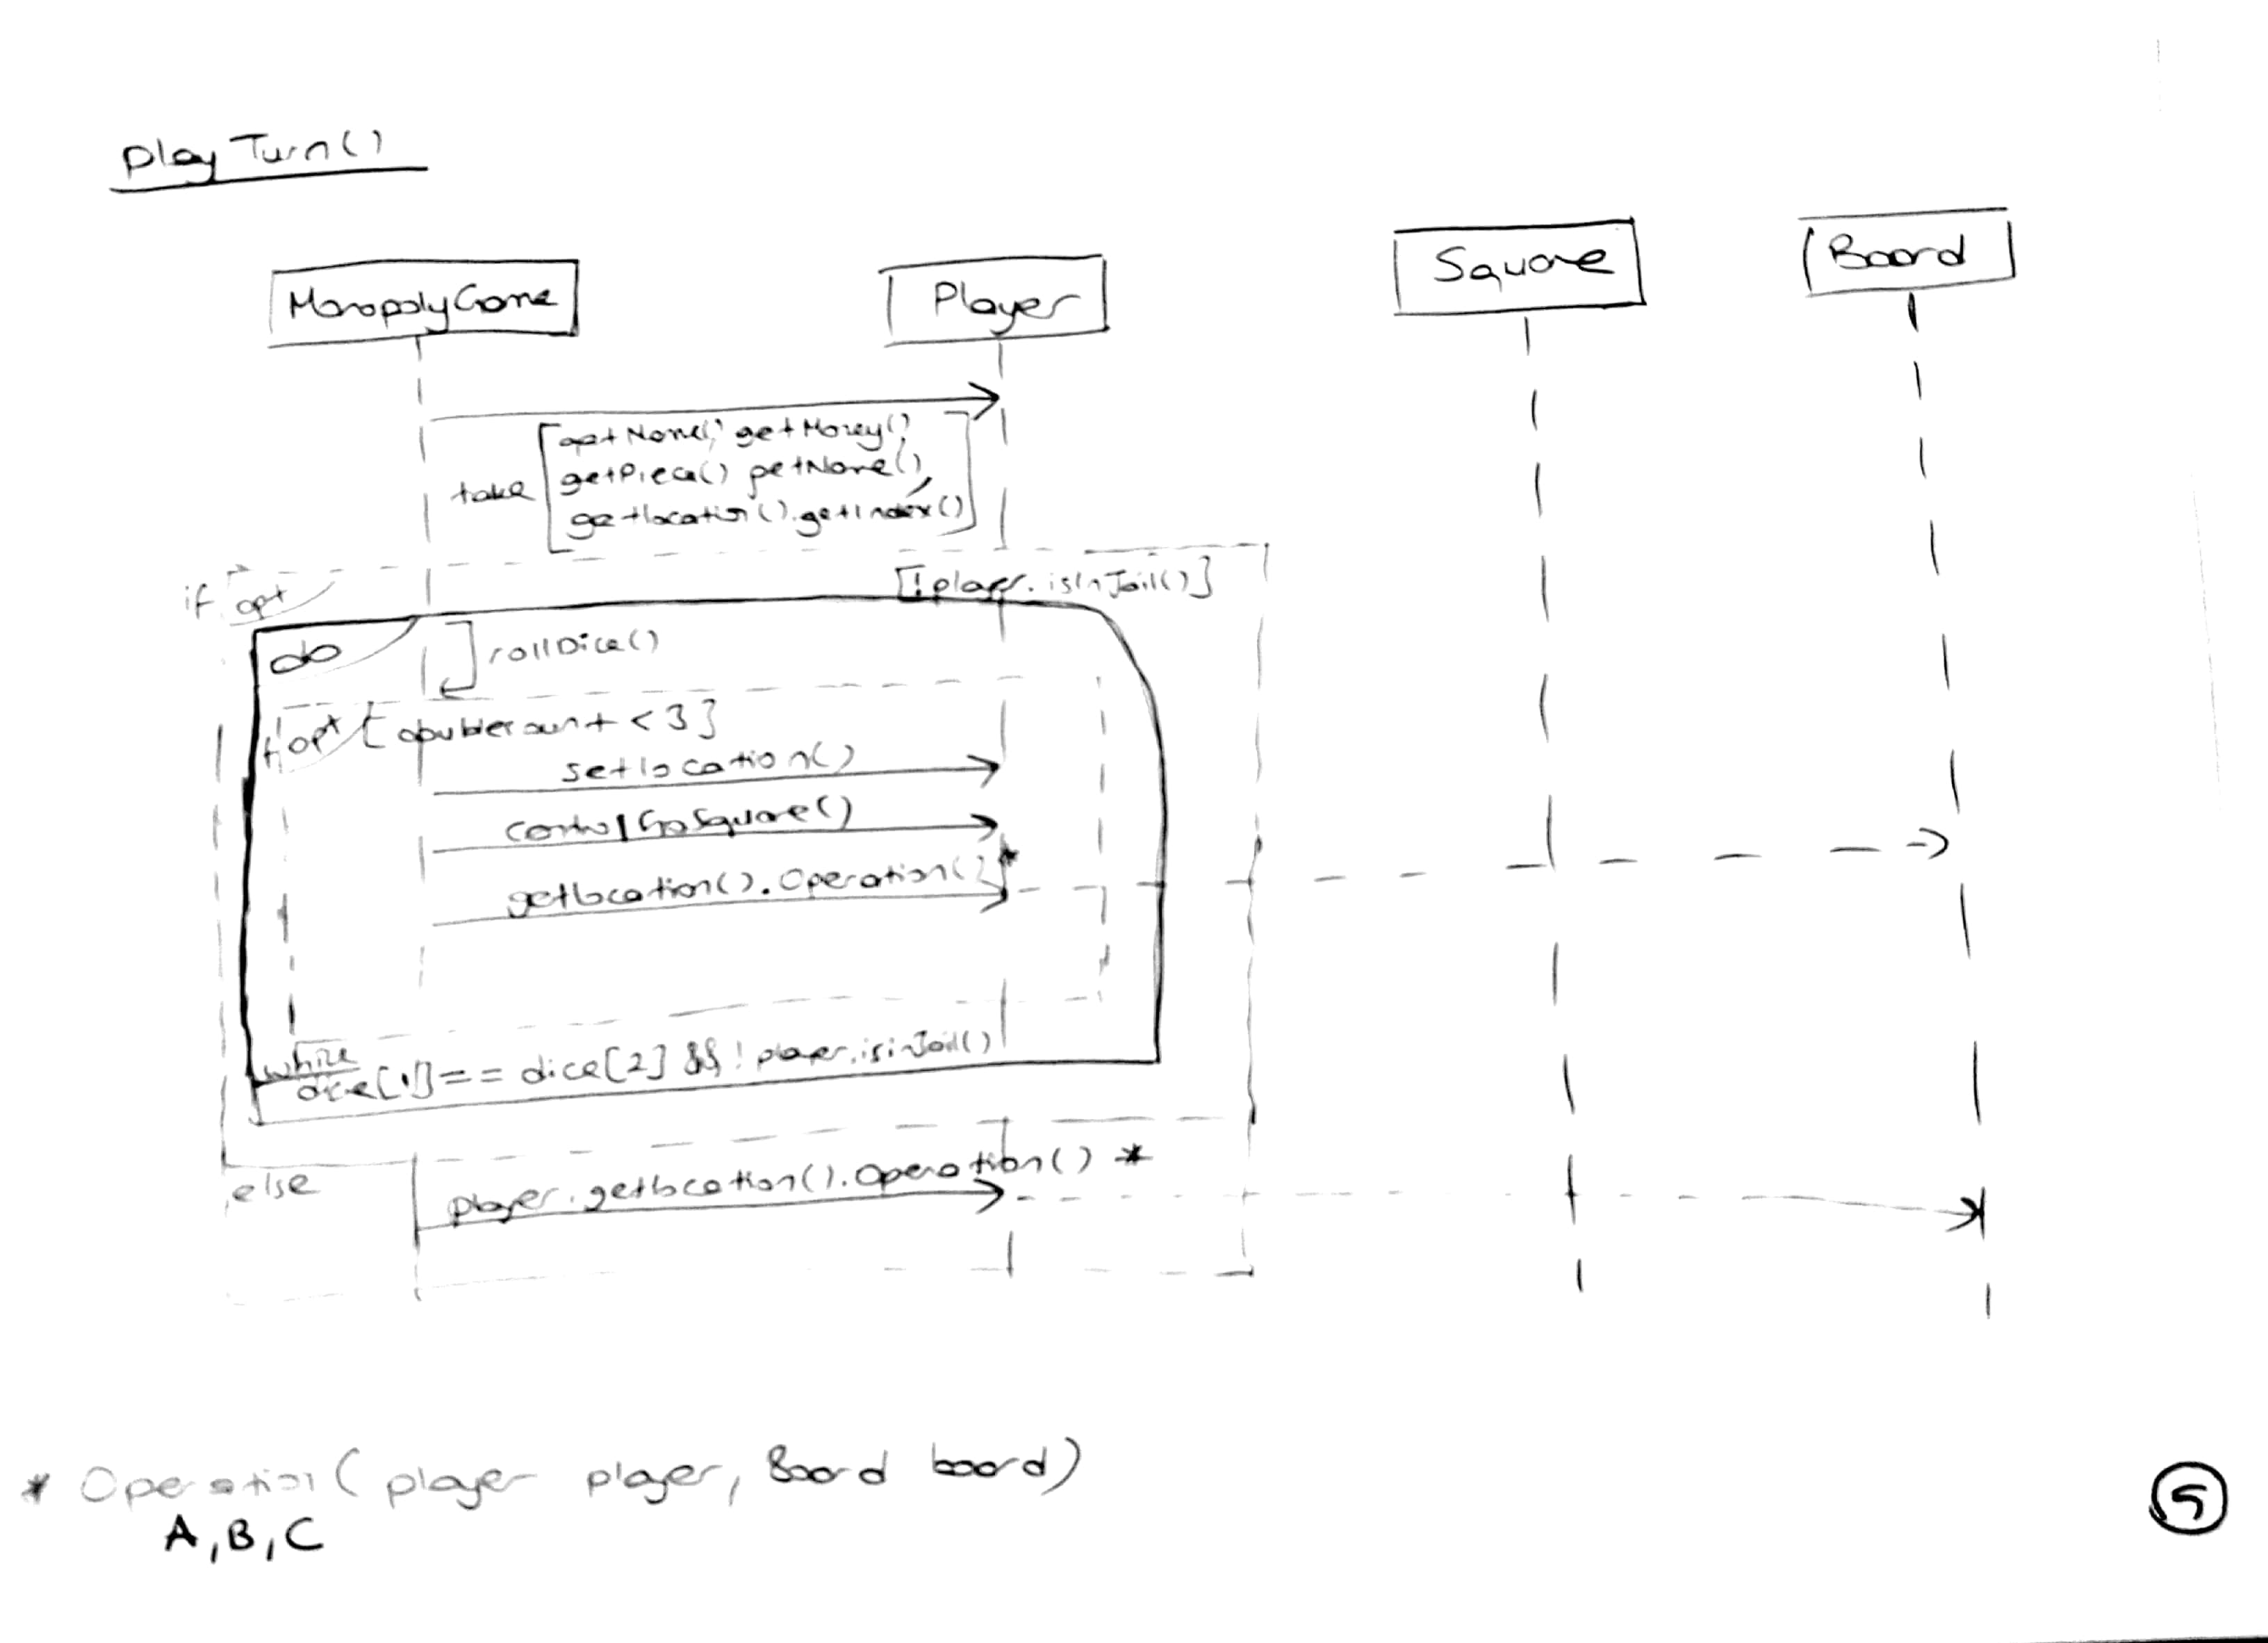 playTurn()
MonopolyGame
Player
Square
Board
getName(), getMoney(),
getPiece() getName(),
take
getlocation().getIndex()
if opt
[!player.isInJail()]
do
rollDice()
opt [doublecount < 3]
setlocation()
controlGoSquare()
getlocation().Operation() *
while
dice[1] == dice[2] && ! player.isinJail()
else
player.getlocation().Operation() *
* Operation( player player, Board board)
A, B, C
5